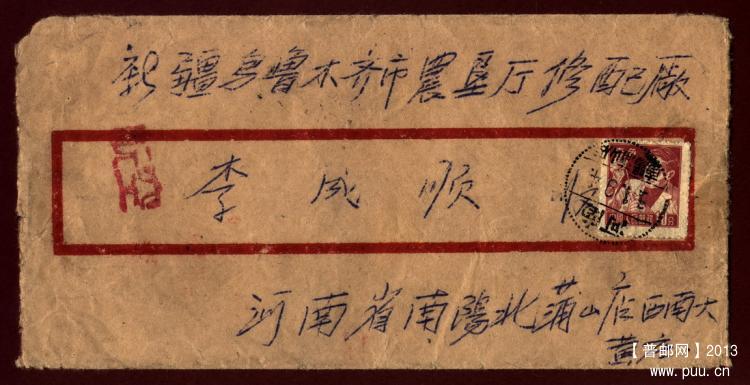 新疆乌鲁木齐市農垦厅修配厰
李成顺
河南省南陽北蒲山店西南大
黄庄
河南
【普邮网】2013
www.puu.cn